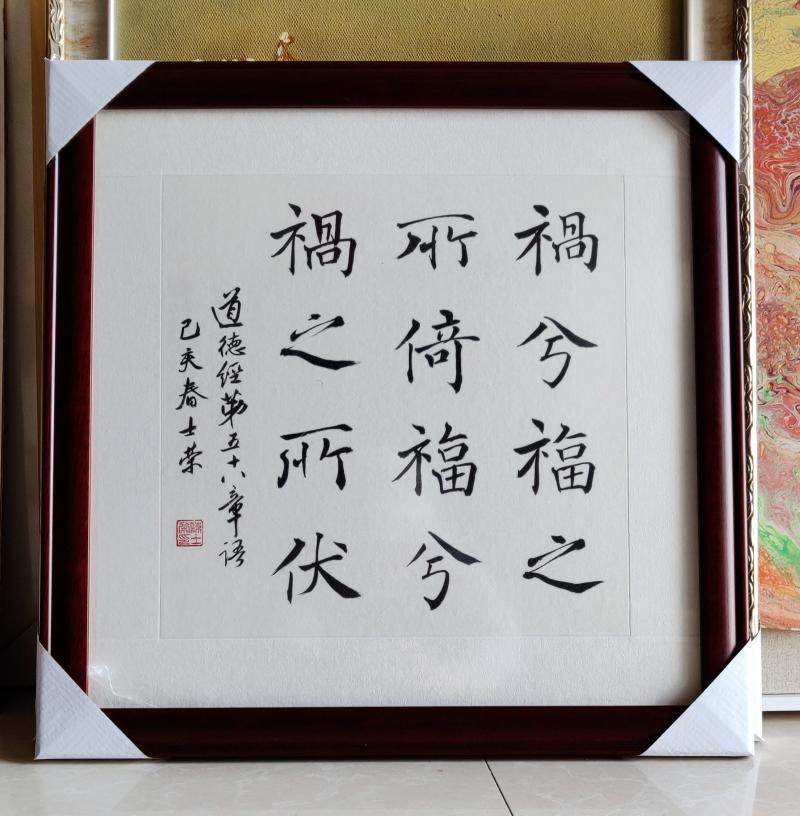 禍兮福之
所倚福兮
禍之所伏
道德經第五十八章語
己亥春士荣